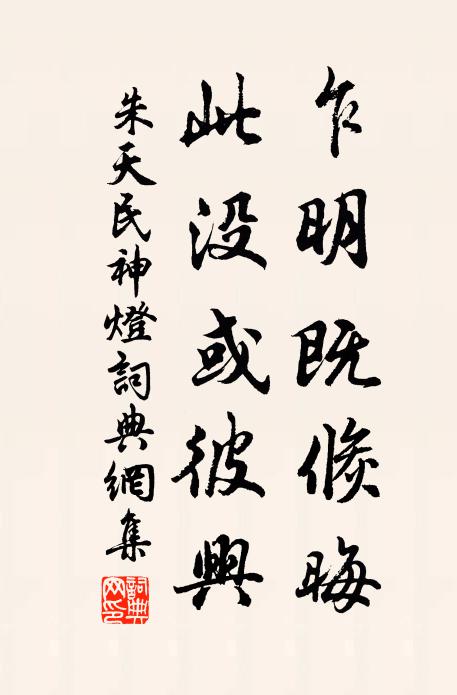 乍明既倏晦
此没或彼興
朱天民神燈詞典網集
詞典網印